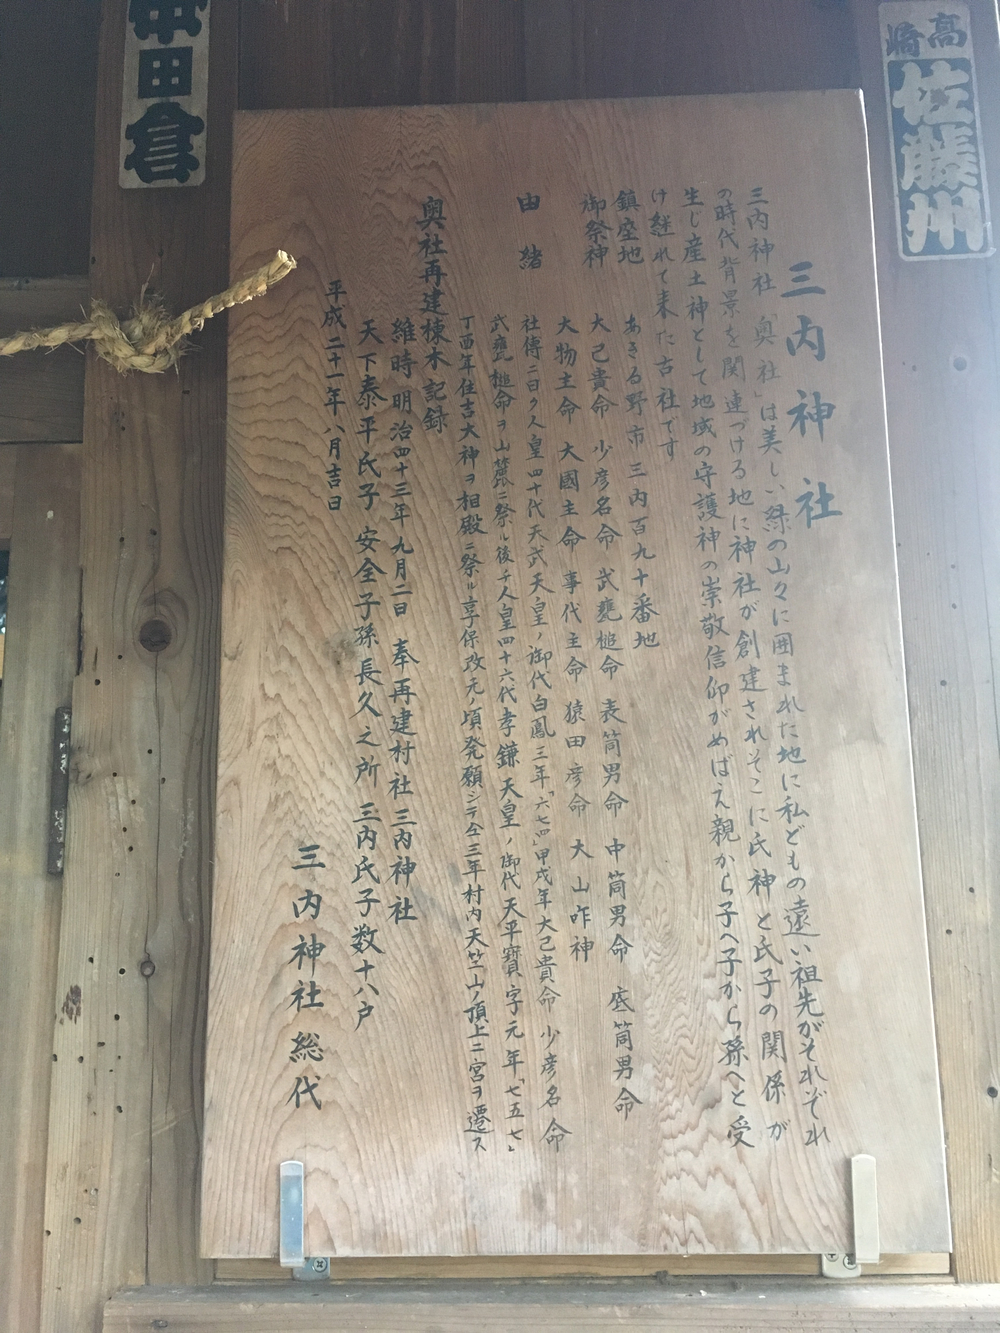 三内神社
三内神社「奥社」は美しい緑の山々に囲まれた地に私どもの遠い祖先がそれぞれ
の時代背景を関連づける地に神社が創建されそこに氏神と氏子の関係が
生じ産土神として地域の守護神の崇敬信仰がめばえ親から子へ子から孫へと受
け継れて来た古社です
鎮座地 あきる野市三内百九十番地
御祭神 大己貴命 少彦名命 武甕槌命 表筒男命 中筒男命 底筒男命
大物主命 大國主命 事代主命 猿田彦命 大山咋神
由緒 社傳ニ曰ク人皇四十代天武天皇ノ御代白鳳三年「六七四」甲戌年大己貴命少彦名命
武甕槌命ヲ山麓ニ祭ル後チ人皇四十六代孝鎌天皇ノ御代天平寶字元年「七五七」
丁酉年住吉大神ヲ相殿ニ祭ル享保改元ノ頃発願シテ仝三年村内天竺山ノ頂上ニ宮ヲ遷ス
奥社再建棟木記録
維時明治四十三年九月二日 奉再建村社三内神社
天下泰平氏子安全子孫長久之所 三内氏子数十八戸
平成二十一年八月吉日
三内神社総代
高崎
佐藤州
田倉